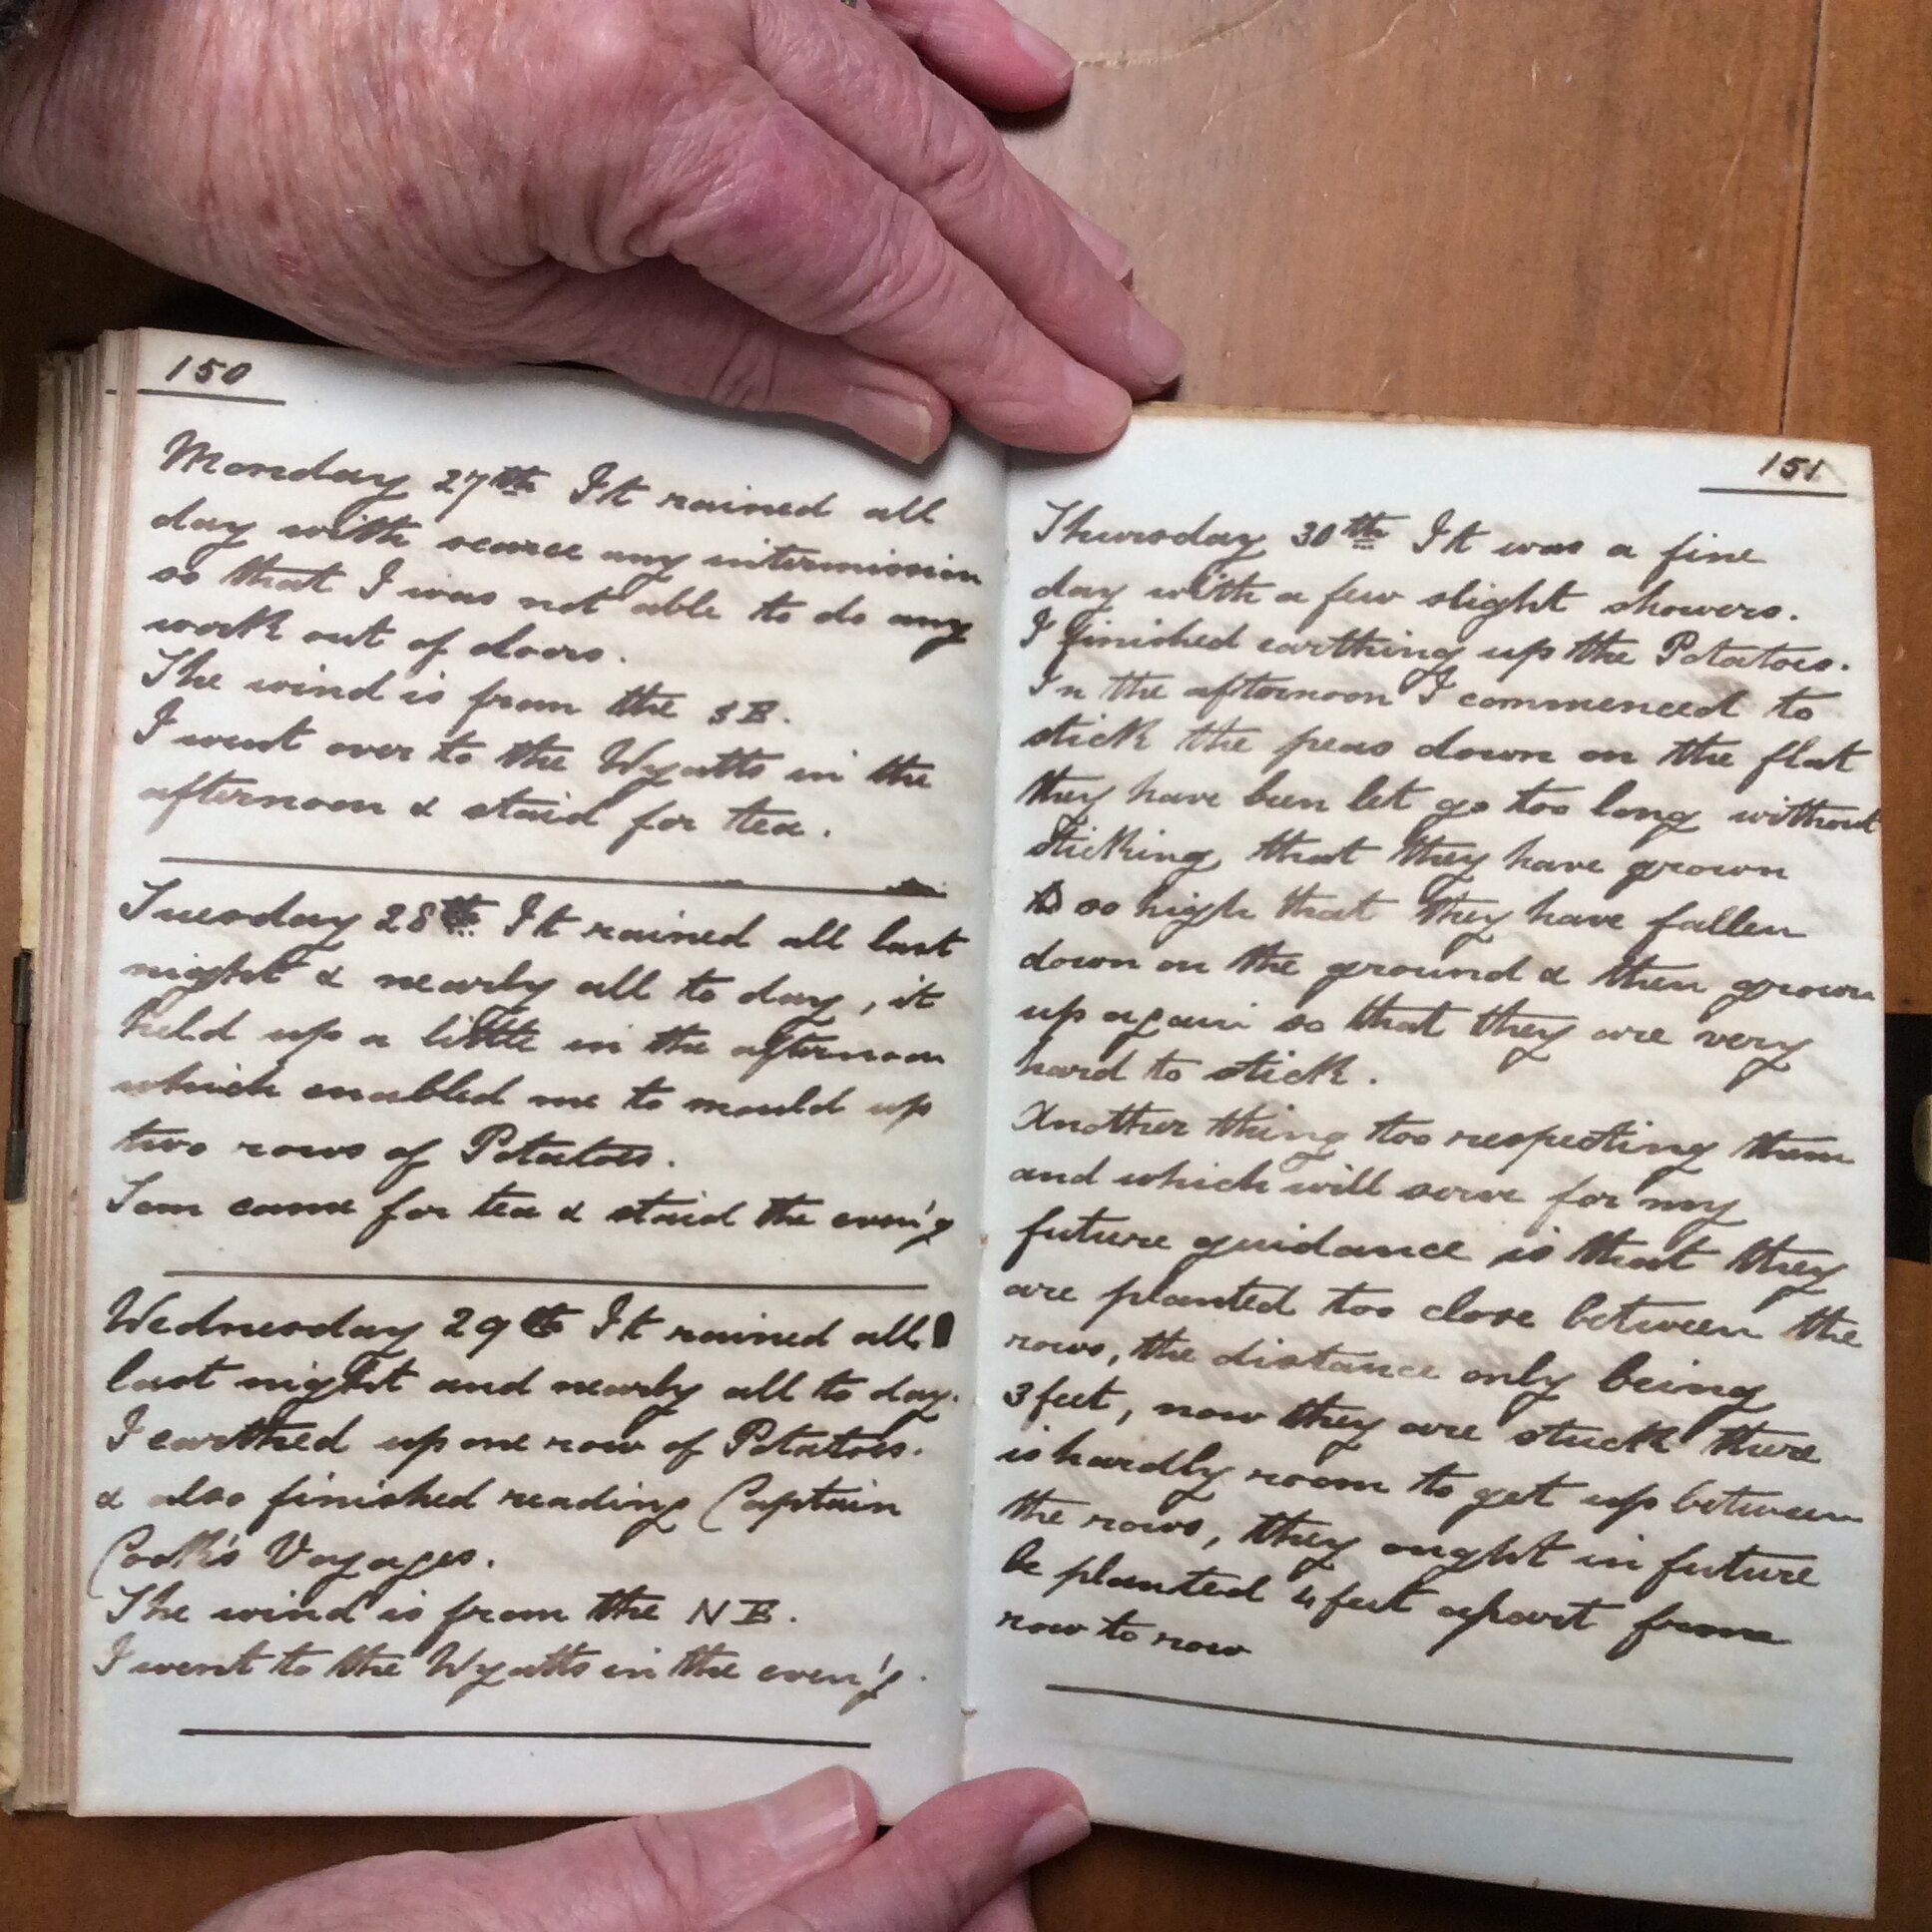 150
Monday 27th It rained all
day with scarce any intermission
so that I was not able to do any
work out of doors.
The wind is from the S E.
I went over to the Wyatts in the
afternoon & staid for tea.
Tuesday 28th It rained all last
night & nearly all to day, it
held up a little in the afternoon
which enabled me to mould up
two rows of Potatoes.
Tom came for tea & staid the even'g
Wednesday 29th It rained all
last night and nearly all to day.
I earthed up one row of Potatoes.
& also finished reading Captain
Cook's Voyages.
The wind is from the N E.
I went to the Wyatts in the even'g.
151
Thursday 30th It was a fine
day with a few slight showers.
I finished earthing up the Potatoes.
In the afternoon I commenced to
stick the peas down on the flat
they have been let go too long without
sticking that they have grown
so high that they have fallen
down on the ground & then grown
up again so that they are very
hard to stick.
Another thing too respecting them
and which will serve for my
future guidance is that they
are planted too close between the
rows, the distance only being
3 feet, now they are stuck there
is hardly room to get up between
the rows, they ought in future
be planted 4 feet apart from
row to row